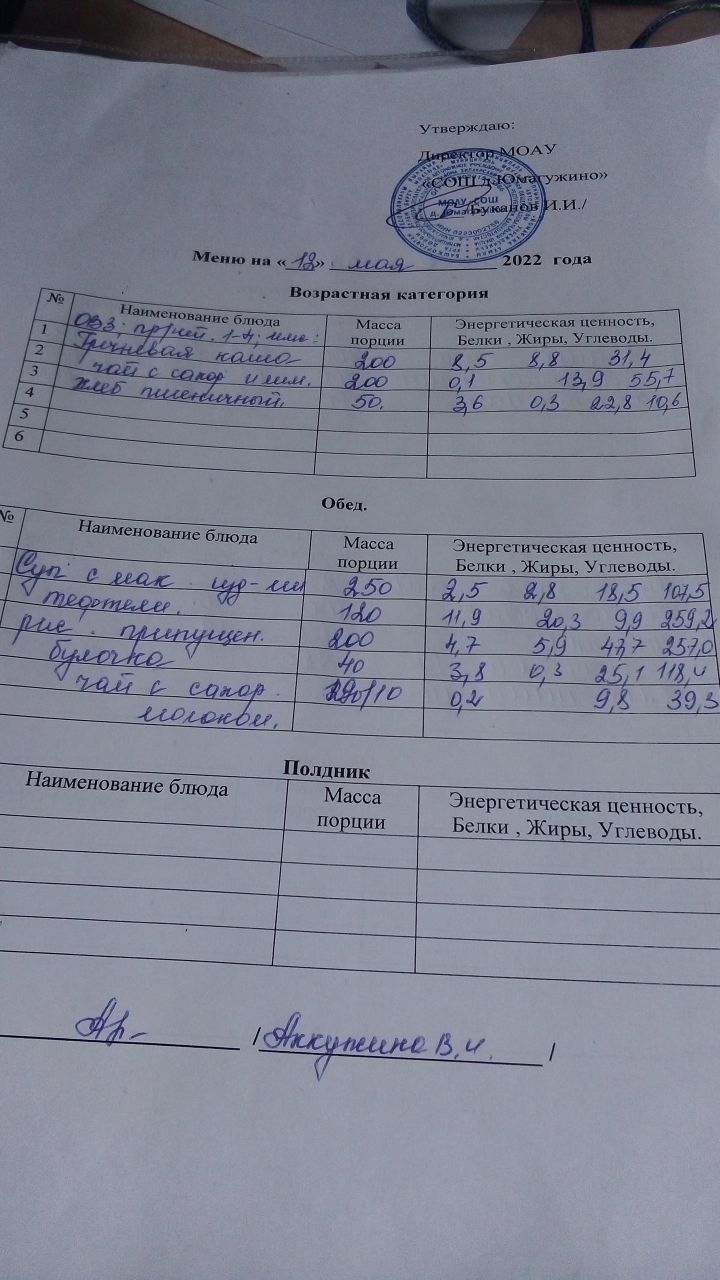 Утверждаю:
Директор МОАУ
«СОШ д.Юмагужино»
/Буканов И.И./
МОАУ СОШ
д. Юмагужино
Меню на «12» мая 2022 года
Возрастная категория
№ Наименование блюда Масса порции Энергетическая ценность, Белки , Жиры, Углеводы.
1 ОВЗ; 1-4;
2 Гречневая каша 200 8,5 8,8 31,4
3 чай с сахар и лим. 200 0,1 13,9 55,7
4 хлеб пшеничный. 50. 3,6 0,3 22,8 10,6
5
6
Обед.
№ Наименование блюда Масса порции Энергетическая ценность, Белки , Жиры, Углеводы.
Суп с мак изд-ми 250 2,5 2,8 18,5 107,5
тефтели. 120 11,9 20,3 9,9 259,2
рис. припущен. 200 4,7 5,9 47,7 257,0
булочка 40 3,8 0,3 25,1 118,4
чай с сахар. 190/10 0,2 9,8 39,3
молоком.
Полдник
Наименование блюда Масса порции Энергетическая ценность, Белки , Жиры, Углеводы.
/Аккужина В.И. /